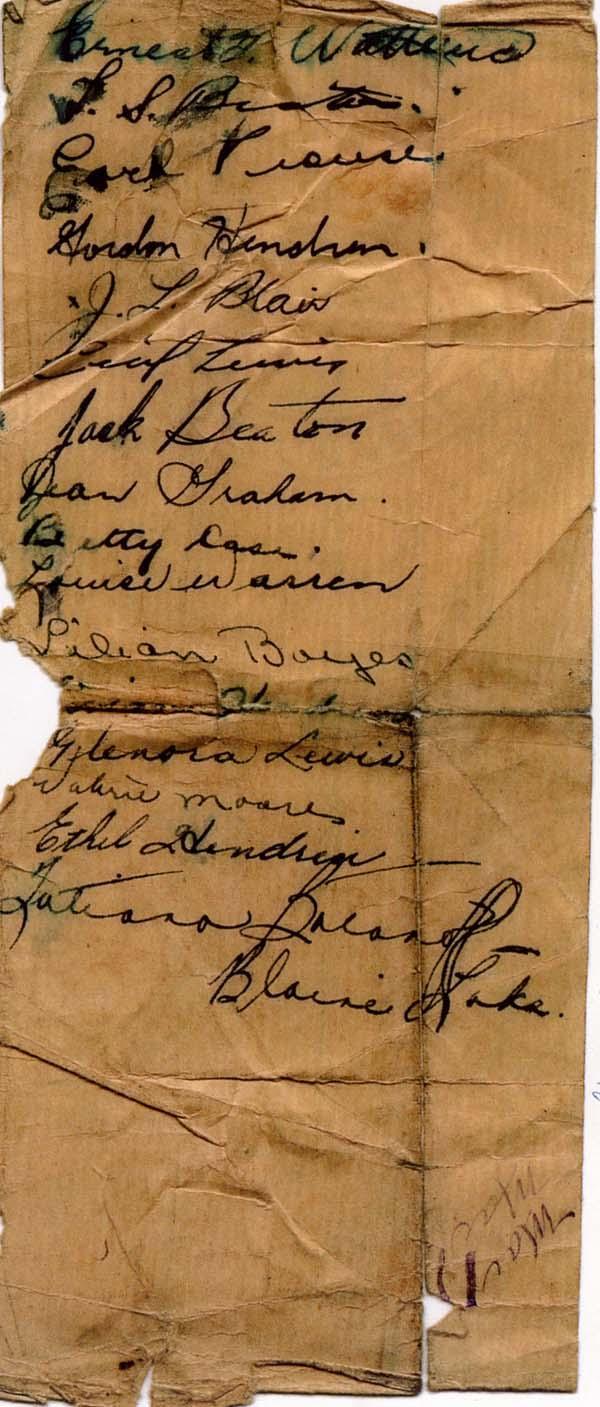 Ernest F. Watkins
F. S. Beaton.
Earl Prouse.
Gordon Hendren.
J. L. Blair
Cecil Lewis
Jack Beaton
Jean Graham.
Betty Case.
Louise Warren
Lilian Boyes
Glenora Lewis
Valerie Moores
Ethel
Tatiana
Blaine Lake.